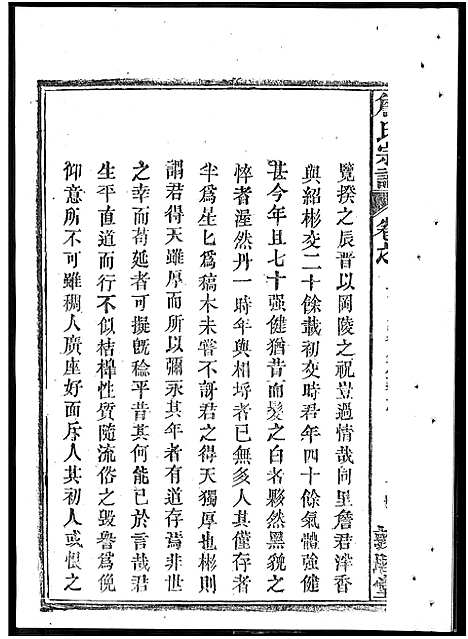 覽揆之辰晋以岡陵之祝豈過情哉同里詹君洋香
與紹彬交二十餘載初交時君年四十餘氣體強健
甚今年且七十强健猶昔而髮之白者夥然黑貌之
悴者渥然丹一時年與相埒者已無多人其僅存者
半爲星匕爲稿木未嘗不訝君之得天獨厚也彬則
謂君得天雖厚而所以彌永其年者有道存焉非世
之幸而苟延者可擬旣稔平昔其何能已於言哉君
生平直道而行不似桔槹性質隨流俗之毀譽爲俛
仰意所不可雖稠人廣座好面斥人其初人或恨之
詹氏宗譜
卷之
堂